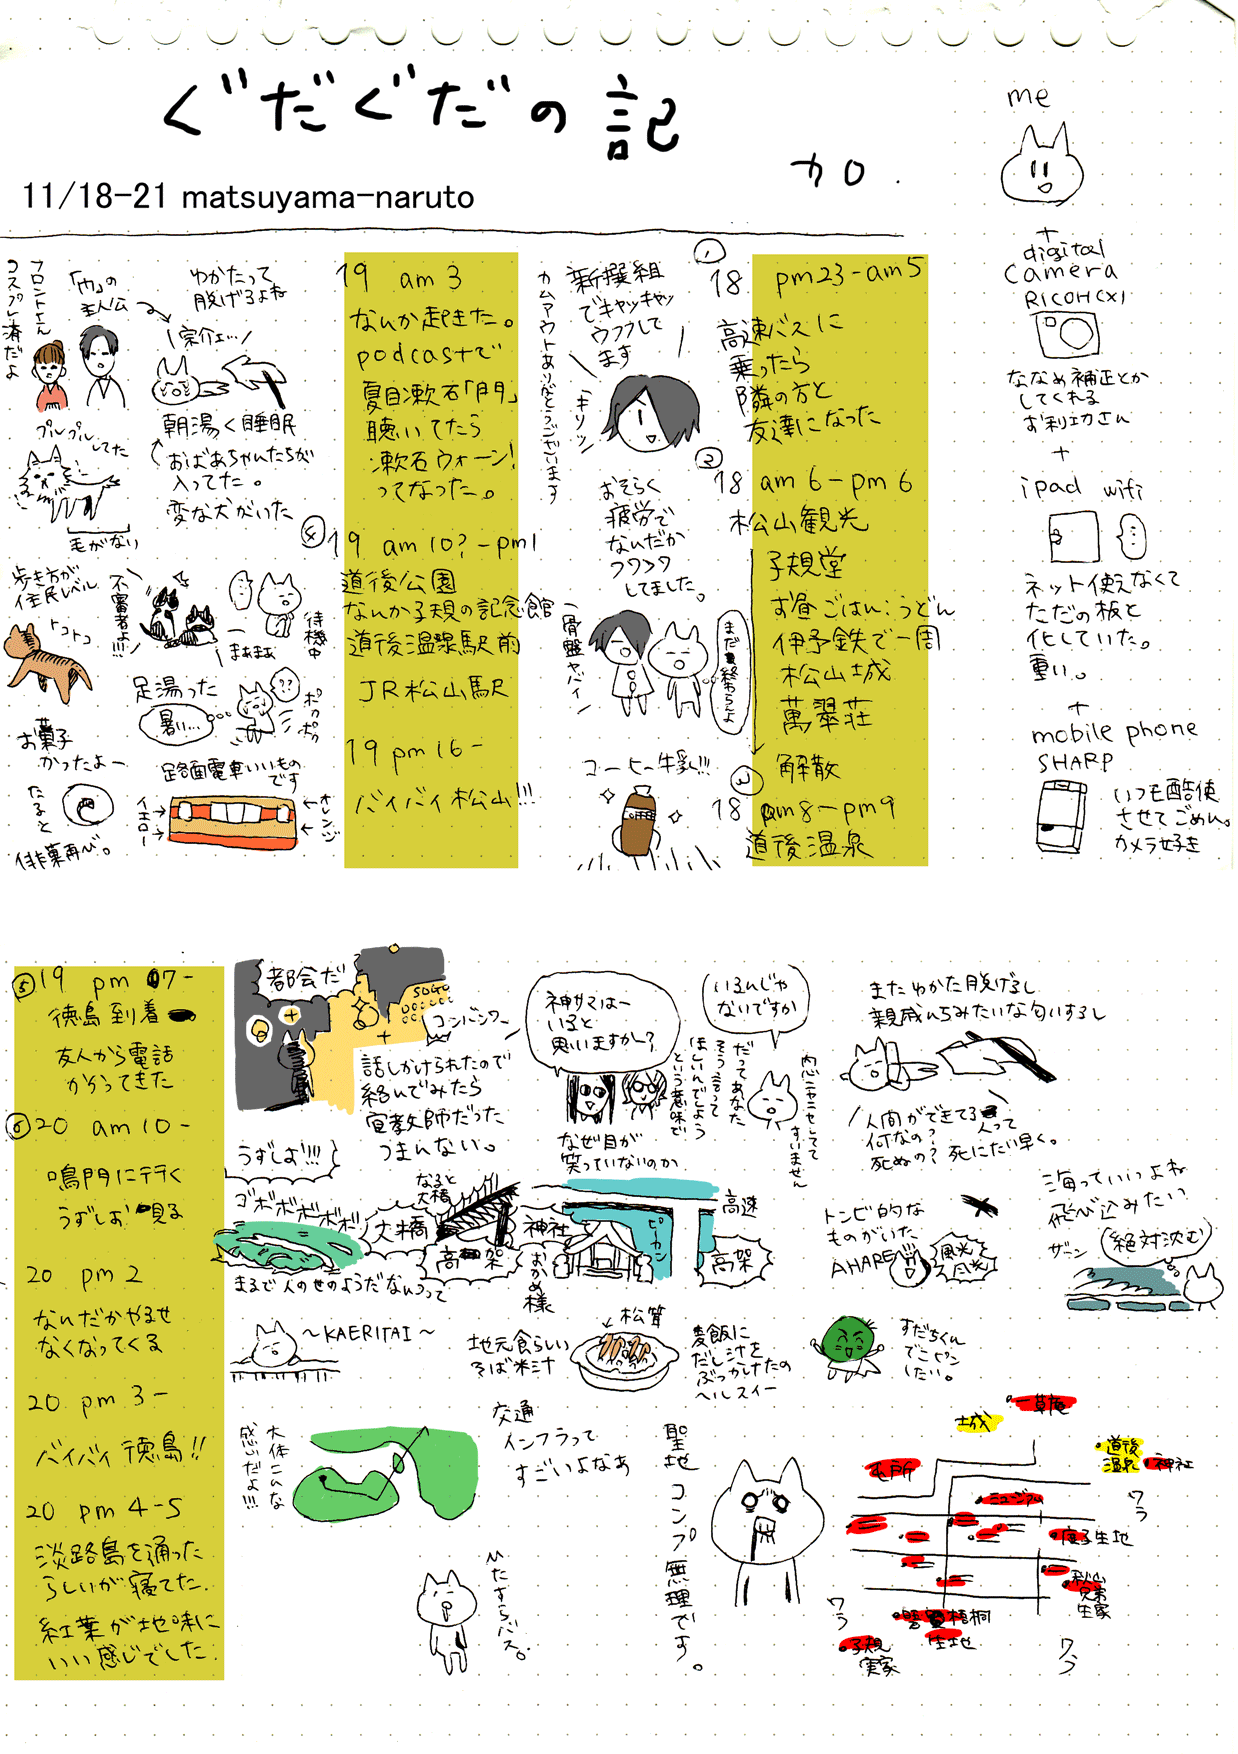 ぐだぐだの記
カロ.
11/18-21 matsuyama-naruto
me
+
digital
camera
RICOH CX1
ななめ補正とか
してくれる
お利工力さん
+
ipad wifi
ネット使えなくて
ただの板と
化していた。
重い。
+
mobile phone
SHARP
いつも酷使
させてごめん。
カメラ好き
① 18 pm23-am5
高速バスに
乗ったら
隣の方と
友達になった
新撰組
でキャッキャッ
ウフフして
ます
カムアウトありがとうございます
キリッ
② 18 am6-pm6
松山観光
子規堂
お昼ごはん:うどん
伊予鉄で一周
松山城
萬翠荘
解散
おそらく
疲労で
なんだか
フワフワ
してました。
骨盤ヤバイ
まだ終わらんよ
③ 18 pm8-pm9
道後温泉
コーヒー牛乳!!!
19 am 3
なんか起きた。
podcastで
夏目漱石「門」
聴いてたら
漱石ウォーン!
ってなった。
「門」の
主人公
フロントさん
コスプレ済だよ
ゆかたって
脱げるよね
宗介ェ…
朝湯く睡眠
おばあちゃんたちが
入ってた。
変な犬がいた
プルプルしてた
毛がない
④ 19 am 10?-pm1
道後公園
なんか子規の記念館
道後温泉駅前
JR松山駅
歩き方が
住民レベル
トコトコ
不審者よ!!!
まぁまぁ
待機中
足湯った
暑い…
??
ポカポカ
お菓子
かったよー
たると
俳菓再び。
路面電車いいもの
です
イエロー
オレンジ
19 pm 16-
バイバイ松山!!!
⑤ 19 pm 07-
徳島到着
友人から電話
かかってきた
都会だ
SOGO
コンバンワー
話しかけられたので
絡んでみたら
宣教師だった
つまんない。
神サマはー
いると
思いますかー?
なぜ目が
笑っていないのか
いるんじゃ
ないですか
だってあなた
そう言って
ほしいんでしょう
という意味で
内心ニヤニヤしてて
すいません
またゆかた脱げるし
親戚んちみたいな匂いするし
人間ができてる人って
何なの?
死ぬの? 死にたい早く。
⑥ 20 am 10-
鳴門に行く
うずしお見る
うずしお!!!
ゴボボボボボ
まるで人のせのようだなんつって
なると
大橋
大橋
高架
神社
おかめ様
ピーカン
高速
高架
トンビ的な
ものがいた
AHARE
風光
海っていいよね
飛び込みたい
ザーン
絶対沈む
20 pm 2
なんだかやるせ
なくなってくる
〜KAERITAI〜
地元食らしい
そば米汁
松茸
麦飯に
だし汁を
ぶっかけたの
ヘルスィー
すだちくん
でこピン
したい。
20 pm 3-
バイバイ徳島!!
大体こんな
感じだよ!!!
交通
インフラって
すごいよなあ
20 pm 4-5
淡路島を通った
らしいが寝てた.
紅葉が地味に
いい感じでした
ひたすらバス。
聖地コンプ無理です。
一草庵
城
道後
温泉
神社
ミュージアム
ワラ
生地
秋山
兄弟
生家
碧梧桐
生地
ワラ
子規
実家
ワラ